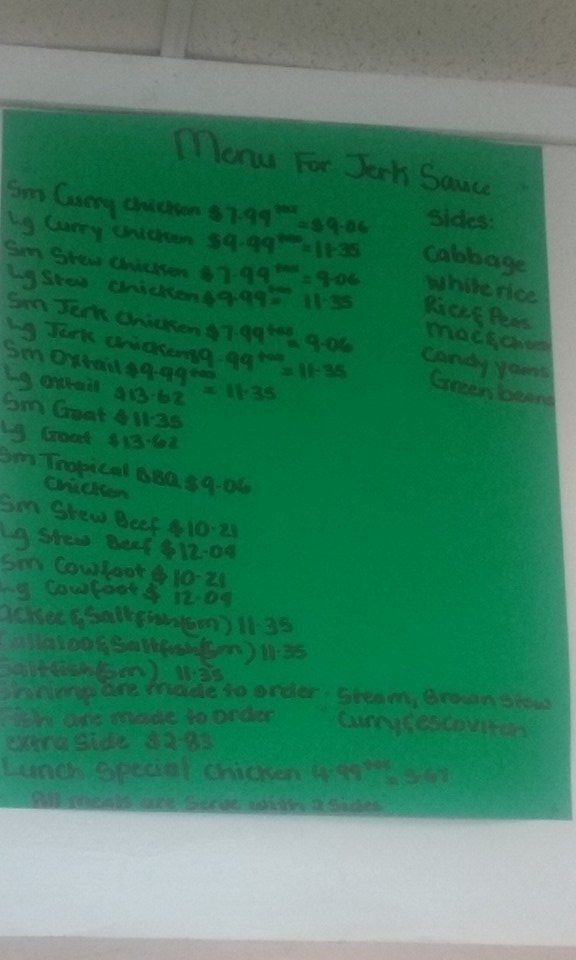 Menu For Jerk Sauce
Sm Curry chicken $7.99 tax = $9.06
Lg Curry chicken $9.99 tax = 11.35
Sm Stew Chicken $7.99 tax = 9.06
Lg Stew chicken $9.99 tax = 11.35
Sm Jerk Chicken $7.99 tax = 9.06
Lg Jerk chicken $9.99 tax = 11.35
Sm Oxtail $9.99 tax = 11.35
Lg oxtail $13.62
Sm Goat $11.35
Lg Goat $13.62
Sm Tropical BBQ $9.06
Chicken
Sm Stew Beef $10.21
Lg Stew Beef $12.09
Sm Cowfoot $10.21
Lg Cowfoot $12.09
ackee & Saltfish (sm) 11.35
Callaloo & Saltfish (sm) 11.35
Saltfish (sm) 11.35
Shrimp are made to order
Fish are made to order
extra side $2.83
Lunch Special Chicken 4.99 tax = 5.67
All meals are serve with 2 sides
Sides:
Cabbage
White rice
Rice & Peas
Mac & cheese
Candy yams
Green beans
Steam, Brown Stew
Curry & escovitch